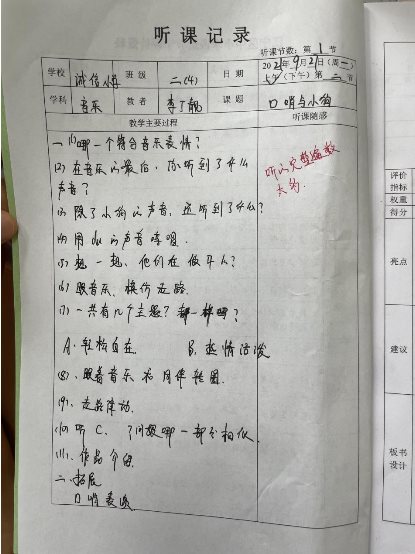 听课记录
听课节数：第 1 节
学校 诚信小学 班级 二(4) 日期 2021年9月2日(周一)
上午(下午)第二节
学科 音乐 教者 李丁靓 课题 口哨与小狗
教学主要过程 听课随感
一 (1)哪一个符合音乐表情？
(2) 在音乐的最后，你听到了什么
声音？
(3) 除了小狗的声音，还听到了什么？
(4) 用du的声音哼唱．
(5) 想一想，他们在做什么？
(6) 跟音乐、模仿走路
(7) 一共有几个主题？都一样吗？
A．轻松自在 B．热情活泼
(8)．跟着音乐和同伴转圈．
(9)．走路律动．
(10) 听C． 问题哪一部分相似．
(11)．作品介绍．
二．拓展
口哨表演
听的完整遍数
太多．
评价
指标
权重
得分
亮点
建议
板书
设计